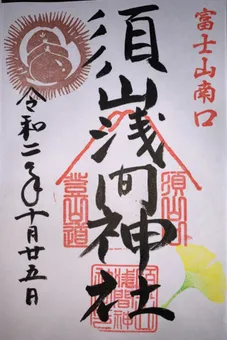 富士山南口
須山浅間神社
令和二年十月廿五日
須山口
登山道